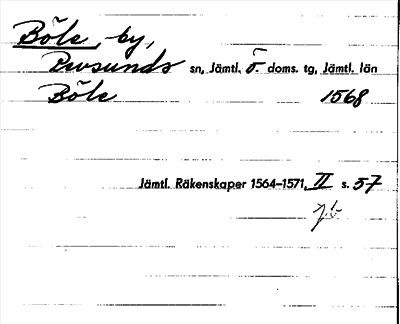 Böle, by,
Revsunds sn, Jämtl. ö. doms. tg, Jämtl. län
Böle 1568
Jämtl. Räkenskaper 1564–1571, II s. 57